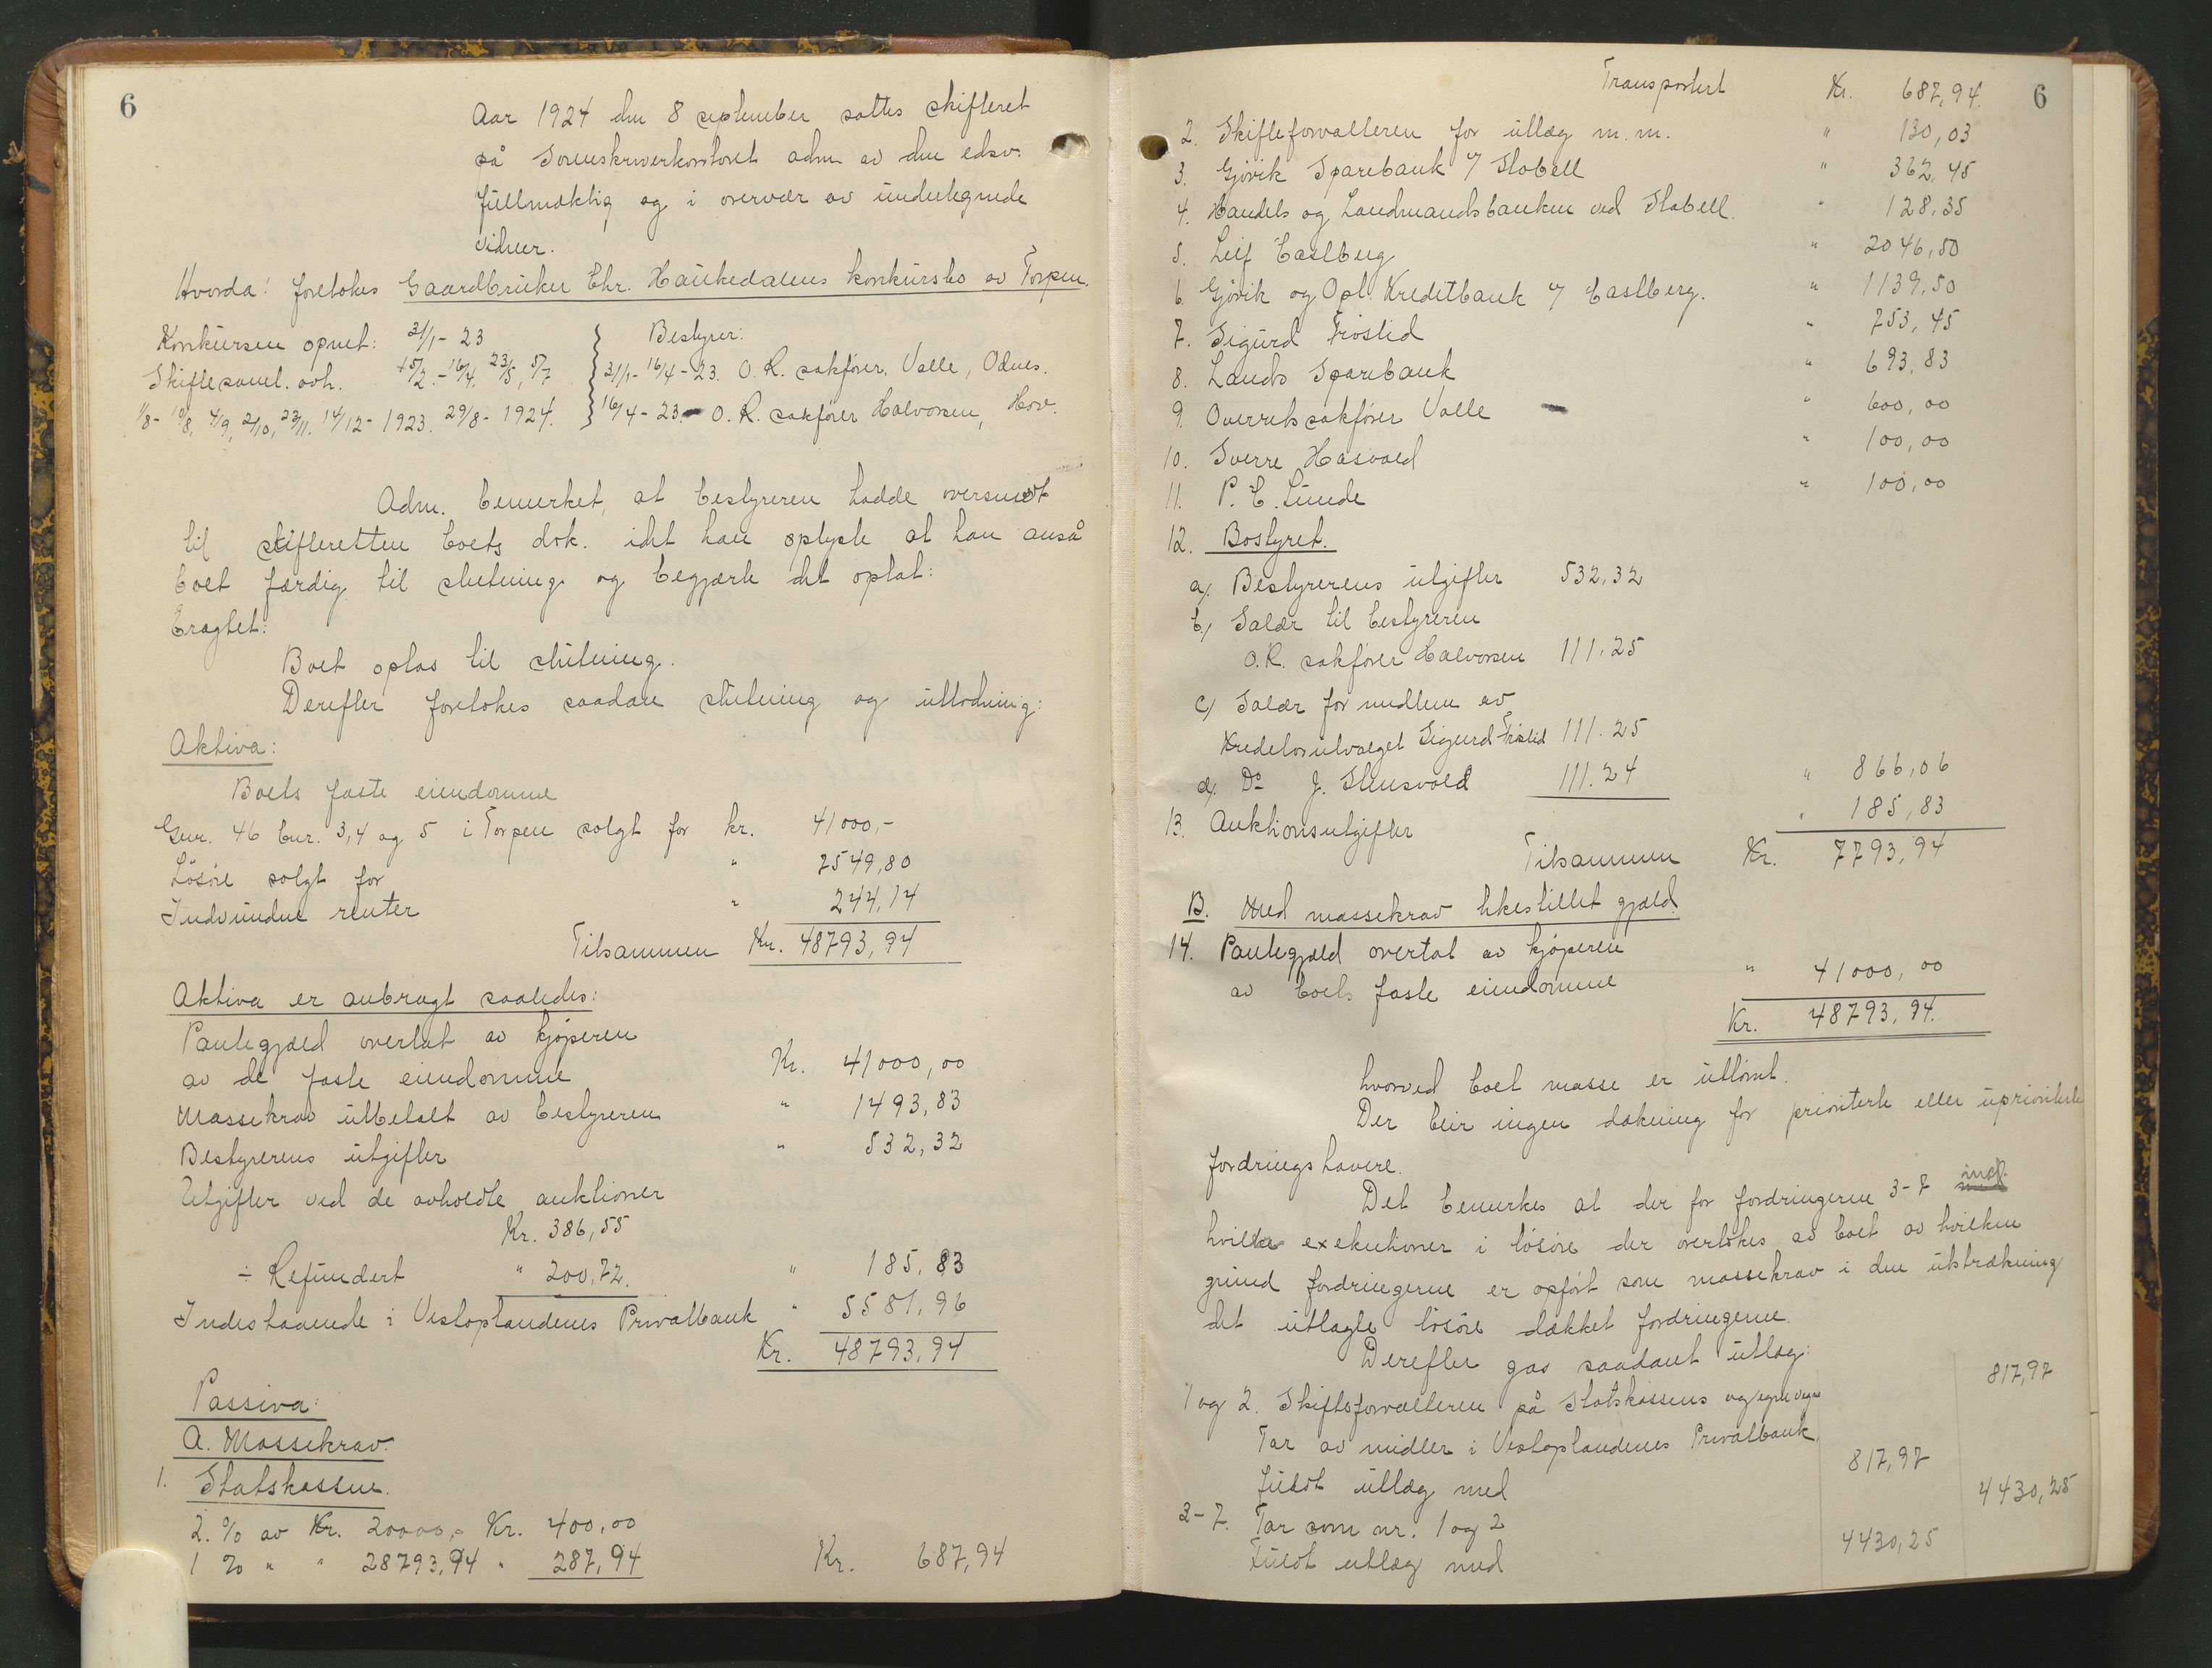 6
Aar 1924 den 8 september sattes skifteret
på Sorenskriverkontoret adm av den edsv.
fuldmæktig og i overvær av undertegnede
vidner.
Hvorda: foretokes Gaardbruker Chr. Haukedalens konkursbo av Torpen.
Konkursen opnet: 31/1 - 23
Skiftesaml. avh. 15/2. - 16/4. 23/5, 5/7
1/8 - 10/8, 4/9, 2/10, 23/11. 14/12 - 1923. 29/8 - 1924.
Bestyrer:
31/1 - 16/4 - 23. O. R. sakfører. Valle, Odnes.
16/4 - 23 - O. R. sakfører Halvorsen, Hov.
Adm. bemerket, at bestyreren hadde oversendt
til skifteretten boets dok. idet han oplyste at han anså
boet færdig til slutning og begjærte det optat:
Eragtet:
Boet optas til slutning.
Derefter foretokes saadan slutning og utlodning:
Aktiva:
Boets faste eiendomme
Gnr. 46 bnr. 3,4 og 5 i Torpen solgt for kr. 41000,-
Løsøre solgt for " 7549,80
Indvundne renter " 244,14
Tilsammen Kr. 48793,94
Aktiva er anbragt saaledes:
Pantegjæld overtat av kjøperen
av de faste eiendomme Kr. 41000,00
Massekrav utbetalt av bestyreren " 1493,83
Bestyrerens utgifter " 532,32
Utgifter ved de avholdte auktioner
Kr. 386,55
÷ Refundert " 200,72. " 185,83
Indestaaende i Vestoplandenes Privatbank " 5581,96
Kr. 48793,94
Passiva:
A. Massekrav.
1. Statskassen.
2.% av Kr. 20000,- Kr. 400,00
1 % " " 28793,94 " 287,94 Kr. 687,94
6
Transportert Kr. 687,94.
2. Skifteforvalteren for utlæg m. m. " 130,03
3. Gjøvik Sparebank v/ Slobell " 362,45
4. Handels og Landmandsbanken ved Slabell. " 128,35
5. Leif Castberg " 2046,50
6. Gjøvik og Opl. Kreditbank v/ Castberg. " 1139,50
7. Sigurd Frøslid " 753,45
8. Lands Sparebank " 693,83
9. Overretssakfører Valle " 600,00
10. Sverre Hasvold " 100,00
11. P. C. Lunde " 100,00
12. Bostyret.
a). Bestyrerens utgifter 532,32
b) Salær til bestyreren
O.R. sakfører Halvorsen 111.25
c) Salær for medlem av
Kreditorutvalget Sigurd Frøslid 111.25
d). Do J. Stensvold 111.24 " 866,06
13. Auktionsutgifter " 185,83
Tilsammen Kr. 7793,94
B. Med massekrav likestillet gjæld.
14. Pantegjæld overtat av kjøperen
av boets faste eiendomme " 41000,00
Kr. 48793,94.
hvorved boet masse er uttømt.
Der blir ingen dækning for prioriterte eller uprioriterte
fordringshavere.
Det bemerkes at der for fordringerne 3-7 incl.
hvilte exekutioner i løsøre der overtokes av boet av hvilken
grund fordringerne er opført som massekrav i den utstrækning
det utlagte løsøre dækket fordringerne.
Derefter gas saadant utlæg:
1 og 2. Skifteforvalteren på Statskassens og egne vegne 817,97
Tar av midler i Vestoplandenes Privatbank
fuldt utlæg med 817,97
3-7. Tar som nr. 1 og 2 4430,25
Fuldt utlæg med 4430,25